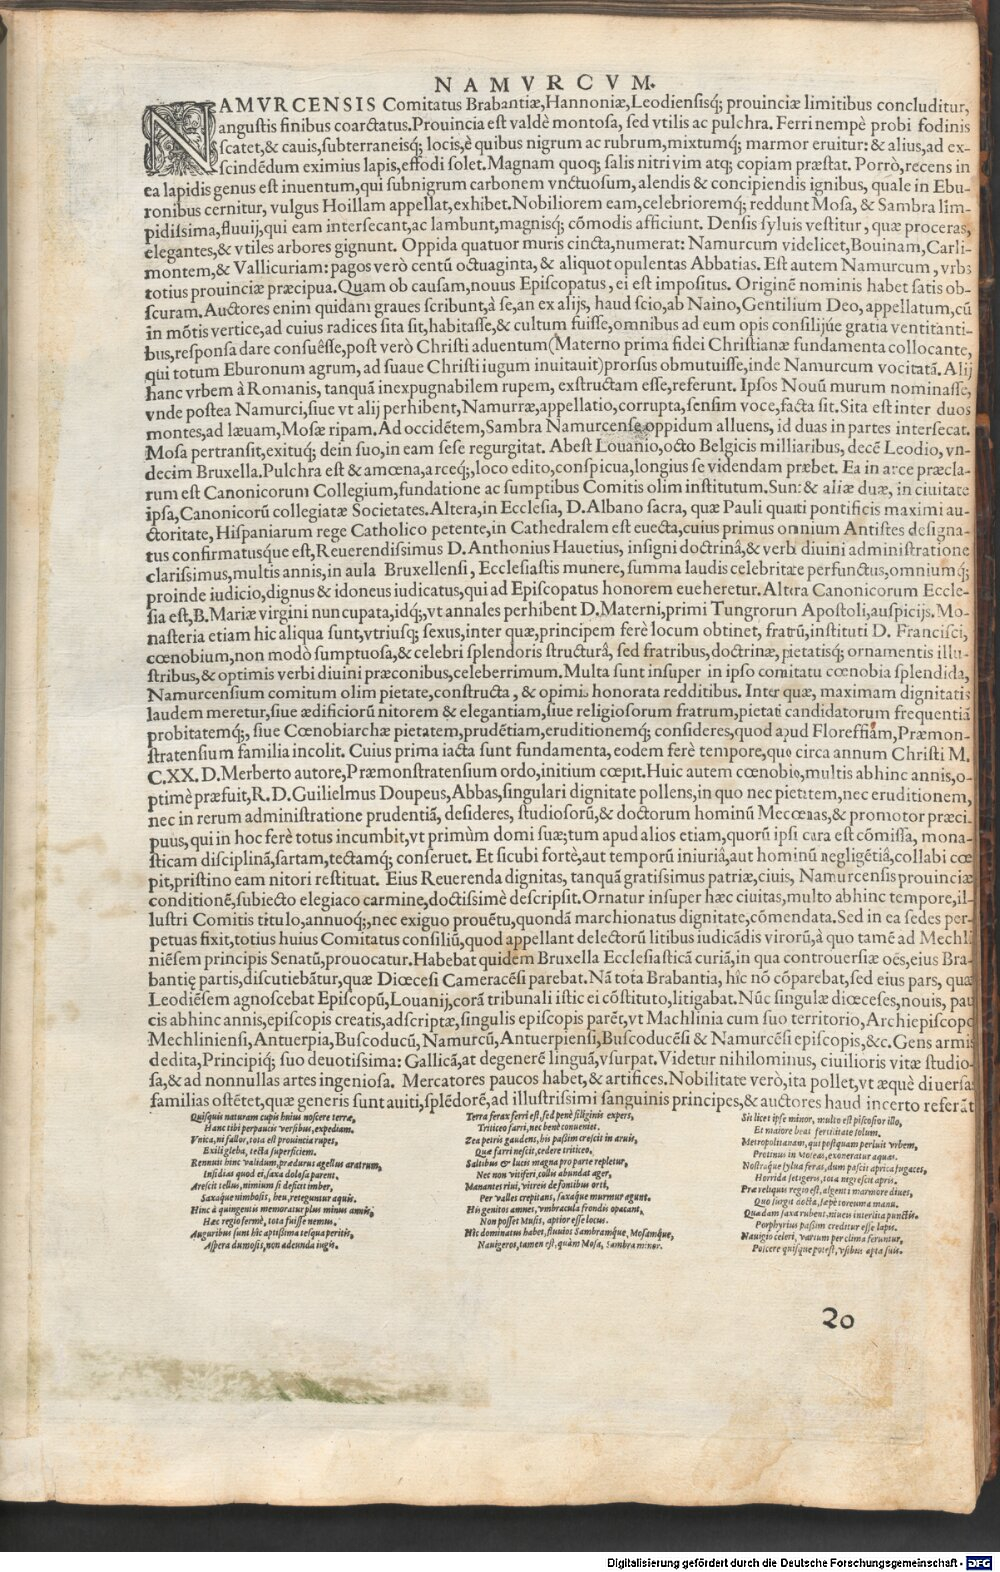 NAMVRCVM.
NAMVRCENSIS Comitatus Brabantiæ, Hannoniæ, Leodiensisq; prouinciæ limitibus concluditur,
angustis finibus coarctatus. Prouincia est valdè montosa, sed vtilis ac pulchra. Ferri nempè probi fodinis
scatet, & cauis, subterraneisq; locis, è quibus nigrum ac rubrum, mixtumq; marmor eruitur: & alius, ad ex-
scindēdum eximius lapis, effodi solet. Magnam quoq; salis nitri vim atq; copiam præstat. Porrò, recens in
ea lapidis genus est inuentum, qui subnigrum carbonem vnctuosum, alendis & concipiendis ignibus, quale in Ebu-
ronibus cernitur, vulgus Hoillam appellat, exhibet. Nobiliorem eam, celebrioremq; reddunt Mosa, & Sambra lim-
pidissima, fluuij, qui eam intersecant, ac lambunt, magnisq; cōmodis afficiunt. Densis syluis vestitur, quæ proceras,
elegantes, & vtiles arbores gignunt. Oppida quatuor muris cincta, numerat: Namurcum videlicet, Bouinam, Carli-
montem, & Vallicuriam: pagos verò centū octuaginta, & aliquot opulentas Abbatias. Est autem Namurcum, vrbs
totius prouinciæ præcipua. Quam ob causam, nouus Episcopatus, ei est impositus. Originē nominis habet satis ob-
scuram. Auctores enim quidam graues scribunt, à se, an ex alijs, haud scio, ab Naino, Gentilium Deo, appellatum, cū
in mōtis vertice, ad cuius radices sita sit, habitasse, & cultum fuisse, omnibus ad eum opis consilijúe gratia ventitanti-
bus, responsa dare consuêsse, post verò Christi aduentum (Materno prima fidei Christianæ fundamenta collocante,
qui totum Eburonum agrum, ad suaue Christi iugum inuitauit) prorsus obmutuisse, inde Namurcum vocitatā. Alij
hanc vrbem à Romanis, tanquā inexpugnabilem rupem, exstructam esse, referunt. Ipsos Nouū murum nominasse,
vnde postea Namurci, siue vt alij perhibent, Namurræ, appellatio, corrupta, sensim voce, facta sit. Sita est inter duos
montes, ad læuam, Mosæ ripam. Ad occidētem, Sambra Namurcense oppidum alluens, id duas in partes intersecat.
Mosa pertransit, exituq; dein suo, in eam sese regurgitat. Abest Louanio, octo Belgicis milliaribus, decē Leodio, vn-
decim Bruxella. Pulchra est & amœna, arceq;, loco edito, conspicua, longius se videndam præbet. Ea in arce præcla-
rum est Canonicorum Collegium, fundatione ac sumptibus Comitis olim institutum. Sunt & aliæ duæ, in ciuitate
ipsa, Canonicorū collegiatæ Societates. Altera, in Ecclesia, D. Albano sacra, quæ Pauli quarti pontificis maximi au-
ctoritate, Hispaniarum rege Catholico petente, in Cathedralem est euecta, cuius primus omnium Antistes designa-
tus confirmatusque est, Reuerendissimus D. Anthonius Hauetius, insigni doctrinâ, & verbi diuini administratione
clarissimus, multis annis, in aula Bruxellensi, Ecclesiastis munere, summa laudis celebritate perfunctus, omniumq;
proinde iudicio, dignus & idoneus iudicatus, qui ad Episcopatus honorem eueheretur. Altera Canonicorum Eccle-
sia est, B. Mariæ virgini nuncupata, idq;, vt annales perhibent D. Materni, primi Tungrorum Apostoli, auspicijs. Mo-
nasteria etiam hic aliqua sunt, vtriusq; sexus, inter quæ, principem ferè locum obtinet, fratrū, instituti D. Francisci,
cœnobium, non modò sumptuosa, & celebri splendoris structurâ, sed fratribus, doctrinæ, pietatisq; ornamentis illu-
stribus, & optimis verbi diuini præconibus, celeberrimum. Multa sunt insuper in ipso comitatu cœnobia splendida,
Namurcensium comitum olim pietate, constructa, & opimis honorata redditibus. Inter quæ, maximam dignitatis
laudem meretur, siue ædificiorū nitorem & elegantiam, siue religiosorum fratrum, pietati candidatorum frequentiā
probitatemq;, siue Cœnobiarchæ pietatem, prudētiam, eruditionemq; consideres, quod apud Floreffiam, Præmon-
stratensium familia incolit. Cuius prima iacta sunt fundamenta, eodem ferè tempore, quo circa annum Christi M.
C.XX. D. Merberto autore, Præmonstratensium ordo, initium cœpit. Huic autem cœnobio, multis abhinc annis, o-
ptimè præfuit, R. D. Guilielmus Doupeus, Abbas, singulari dignitate pollens, in quo nec pietatem, nec eruditionem,
nec in rerum administratione prudentiā, desideres, studiosorū, & doctorum hominū Mecœnas, & promotor præci-
puus, qui in hoc ferè totus incumbit, vt primùm domi suæ, tum apud alios etiam, quorū ipsi cura est cōmissa, mona-
sticam disciplinā, sartam, tectamq; conseruet. Et sicubi fortè, aut temporū iniuriâ, aut hominū negligētiâ, collabi cœ
pit, pristino eam nitori restituat. Eius Reuerenda dignitas, tanquā gratissimus patriæ, ciuis, Namurcensis prouinciæ
conditionē, subiecto elegiaco carmine, doctissimè descripsit. Ornatur insuper hæc ciuitas, multo abhinc tempore, il-
lustri Comitis titulo, annuoq;, nec exiguo prouētu, quondā marchionatus dignitate, cōmendata. Sed in ea sedes per-
petuas fixit, totius huius Comitatus consiliū, quod appellant delectorū litibus iudicādis virorū, à quo tamē ad Mechli
niēsem principis Senatū, prouocatur. Habebat quidem Bruxella Ecclesiasticā curiā, in qua controuersiæ oēs, eius Bra-
bantię partis, discutiebātur, quæ Diœcesi Cameracēsi parebat. Nā tota Brabantia, hîc nō cōparebat, sed eius pars, quæ
Leodiēsem agnoscebat Episcopū, Louanij, corā tribunali istic ei cōstituto, litigabat. Nūc singulæ diœceses, nouis, pau
cis abhinc annis, episcopis creatis, adscriptæ, singulis episcopis parēt, vt Machlinia cum suo territorio, Archiepiscopo
Mechliniensi, Antuerpia, Buscoducū, Namurcū, Antuerpiensi, Buscoducēsi & Namurcēsi episcopis, &c. Gens armis
dedita, Principiq; suo deuotissima: Gallicā, at degenerē linguā, vsurpat. Videtur nihilominus, ciuilioris vitæ studio-
sa, & ad nonnullas artes ingeniosa. Mercatores paucos habet, & artifices. Nobilitate verò, ita pollet, vt æquè diuersas
familias ostētet, quæ generis sunt auiti, splēdorē, ad illustrissimi sanguinis principes, & auctores haud incerto referāt
Quisquis naturam cupis huius noscere terræ,
Hanc tibi perpaucis versibus, expediam.
Vnica, ni fallor, tota est prouincia rupes,
Exili gleba, tecta superficiem.
Rennuit hinc validum, prædurus agellus aratrum,
Insidias quod ei, saxa dolosa parent.
Arescit tellus, nimium si deficit imber,
Saxaque nimbosis, heu, reteguntur aquis.
Hinc à quingentis memoratur plus minus annis,
Hæc regio fermè, tota fuisse nemus.
Auguribus sunt hîc aptissima tesqua peritis,
Aspera dumosis, non adeunda iugis.
Terra ferax ferri est, sed penè siliginis expers,
Triticeo farri, nec benè conueniet.
Zea petris gaudens, his passim crescit in aruis,
Quæ farri nescit, cedere triticeo.
Saltibus & lucis magna pro parte repletur,
Nec non vitiferi, collis abundat ager.
Manantes riui, vitreis de fontibus orti,
Per valles crepitant, saxaque murmur agunt.
His genitos amnes, vmbracula frondis opacant,
Non posset Musis, aptior esse locus.
Hîc dominatus habet, fluuios Sambramque, Mosamque,
Nauigeros, tamen est, quàm Mosa, Sambra minor.
Sit licet ipse minor, multo est piscosior illo,
Et maiore beat fertilitate solum.
Metropolitanam, qui postquam perluit vrbem,
Protinus in Moseas, exoneratur aquas.
Nostraque sylua feras, dum pascit aprica fugaces,
Horrida setigeros, tota nigrescit apris.
Præ reliquis regio est, algenti marmore diues,
Quo surgit docta, sæpè toreuma manu.
Quædam saxa rubent, niueis interlita punctis,
Porphyrius passim creditur esse lapis.
Nauigio celeri, varium per clima feruntur,
Poscere quisque potest, vsibus apta suis.
20
Digitalisierung gefördert durch die Deutsche Forschungsgemeinschaft - DFG